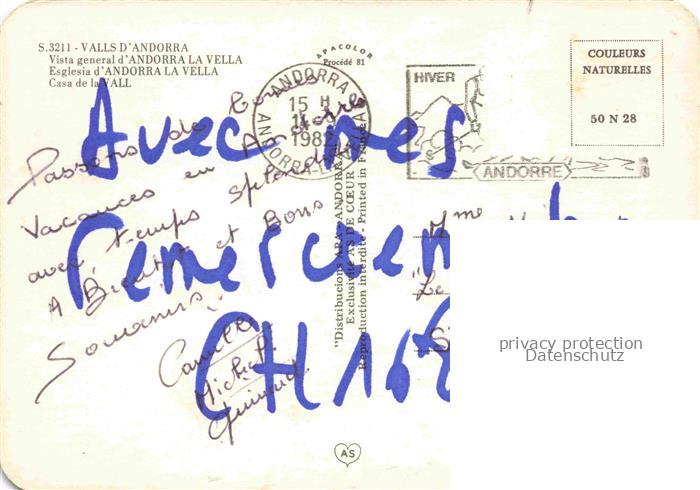 S.3211 - VALLS D'ANDORRA
Vista general d'ANDORRA LA VELLA
Esglesia d'ANDORRA LA VELLA
Casa de la VALL
APACOLOR
Procédé 81
ANDORRA
15 H
1982
ANDORRA
HIVER
ANDORRE
COULEURS
NATURELLES
50 N 28
Passons de bonnes
Vacances en Andorre
avec temps splendide
A Bientôt et Bons
Souvenirs.
Camille
Michel
Avec mes
Remerciem
CH 16
"Distribucions APA - ANDORRA
Exclusivité AS DE CŒUR
Reproduction interdite - Printed in France
Mme
Le
AS
privacy protection
Datenschutz